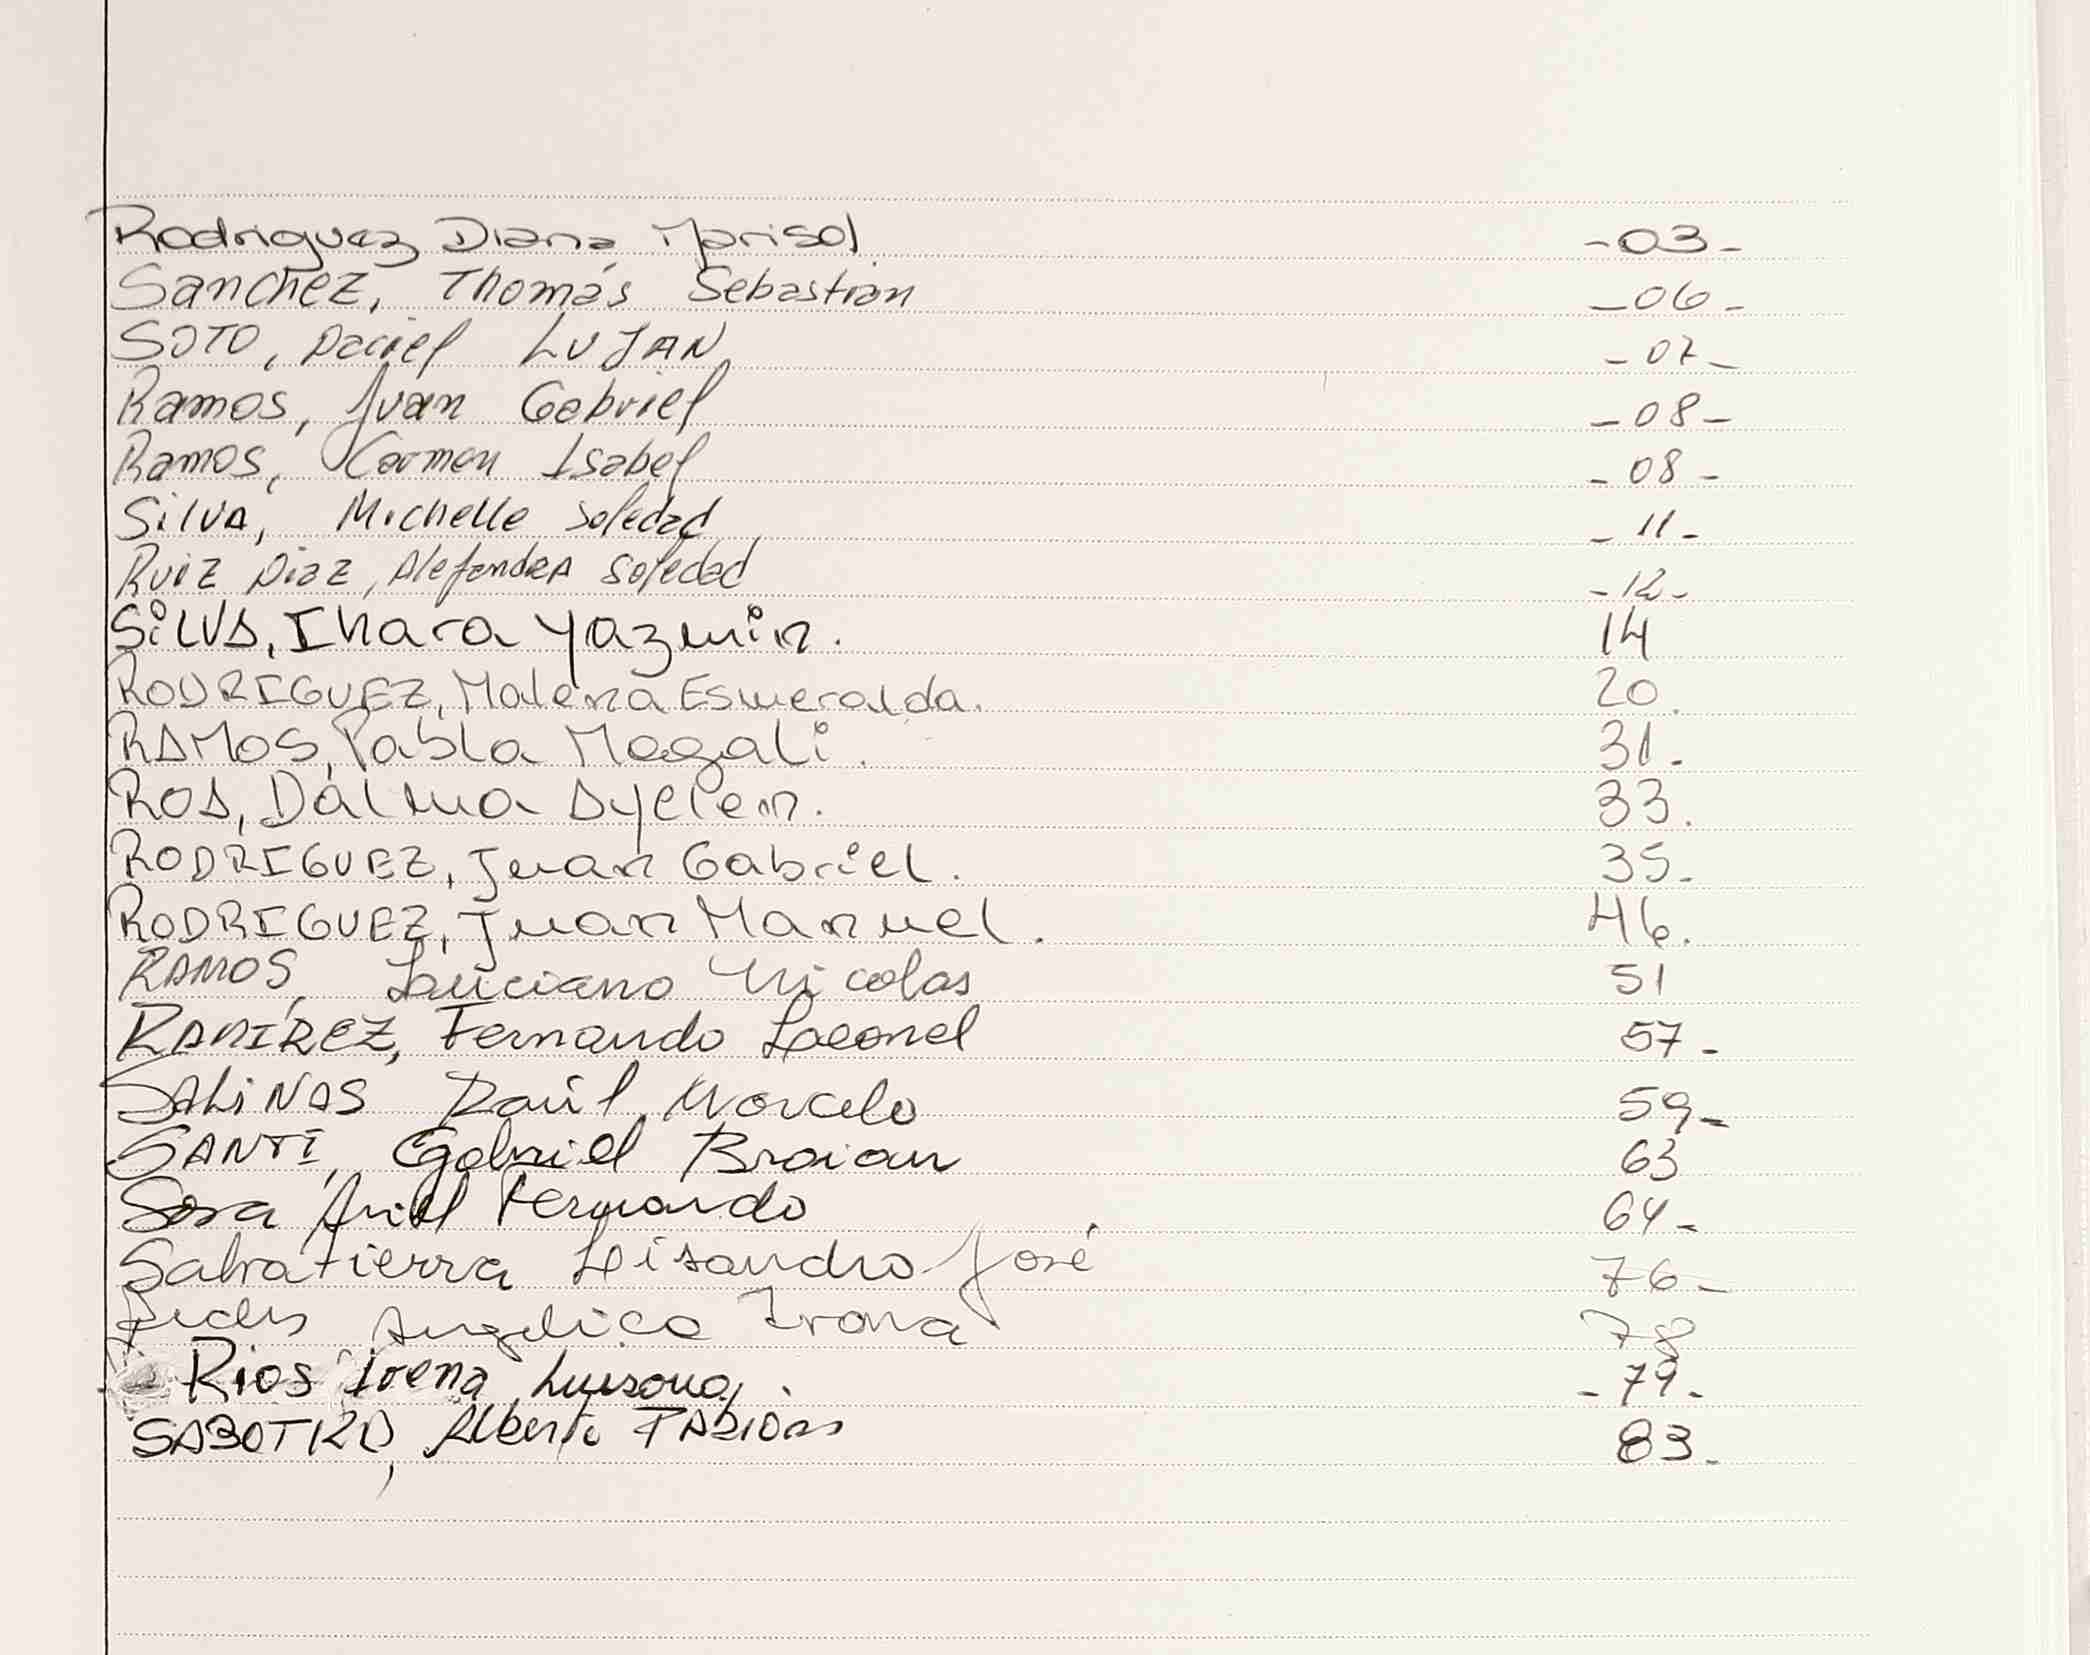 Rodriguez Diana Marisol. -03-
Sanchez, Thomás Sebastian -06-
SOTO, Daniel LUJAN -07-
Ramos, Juan Gabriel -08-
Ramos, Carmen Isabel -08-
Silva, Michelle Soledad -11-
Ruiz Diaz, Alejandra Soledad -12-
SILVA, Ihara Yazmin. 14
RODRIGUEZ, Malena Esmeralda. 20.
RAMOS, Pabla Magali. 31.
ROA, Dalma Ayelen. 33.
RODRIGUEZ, Juan Gabriel. 35.
RODRIGUEZ, Juan Manuel. 46.
RAMOS, Luciano Nicolas 51
RAMIREZ, Fernando Leonel 57-
SALINAS Raúl Marcelo 59-
SANTI, Gabriel Braian 63
Sosa Ariel Fernando 64-
Salvatierra Lisandro José 76-
Angelica 78
Rios Irena -79-
Alberto 83-